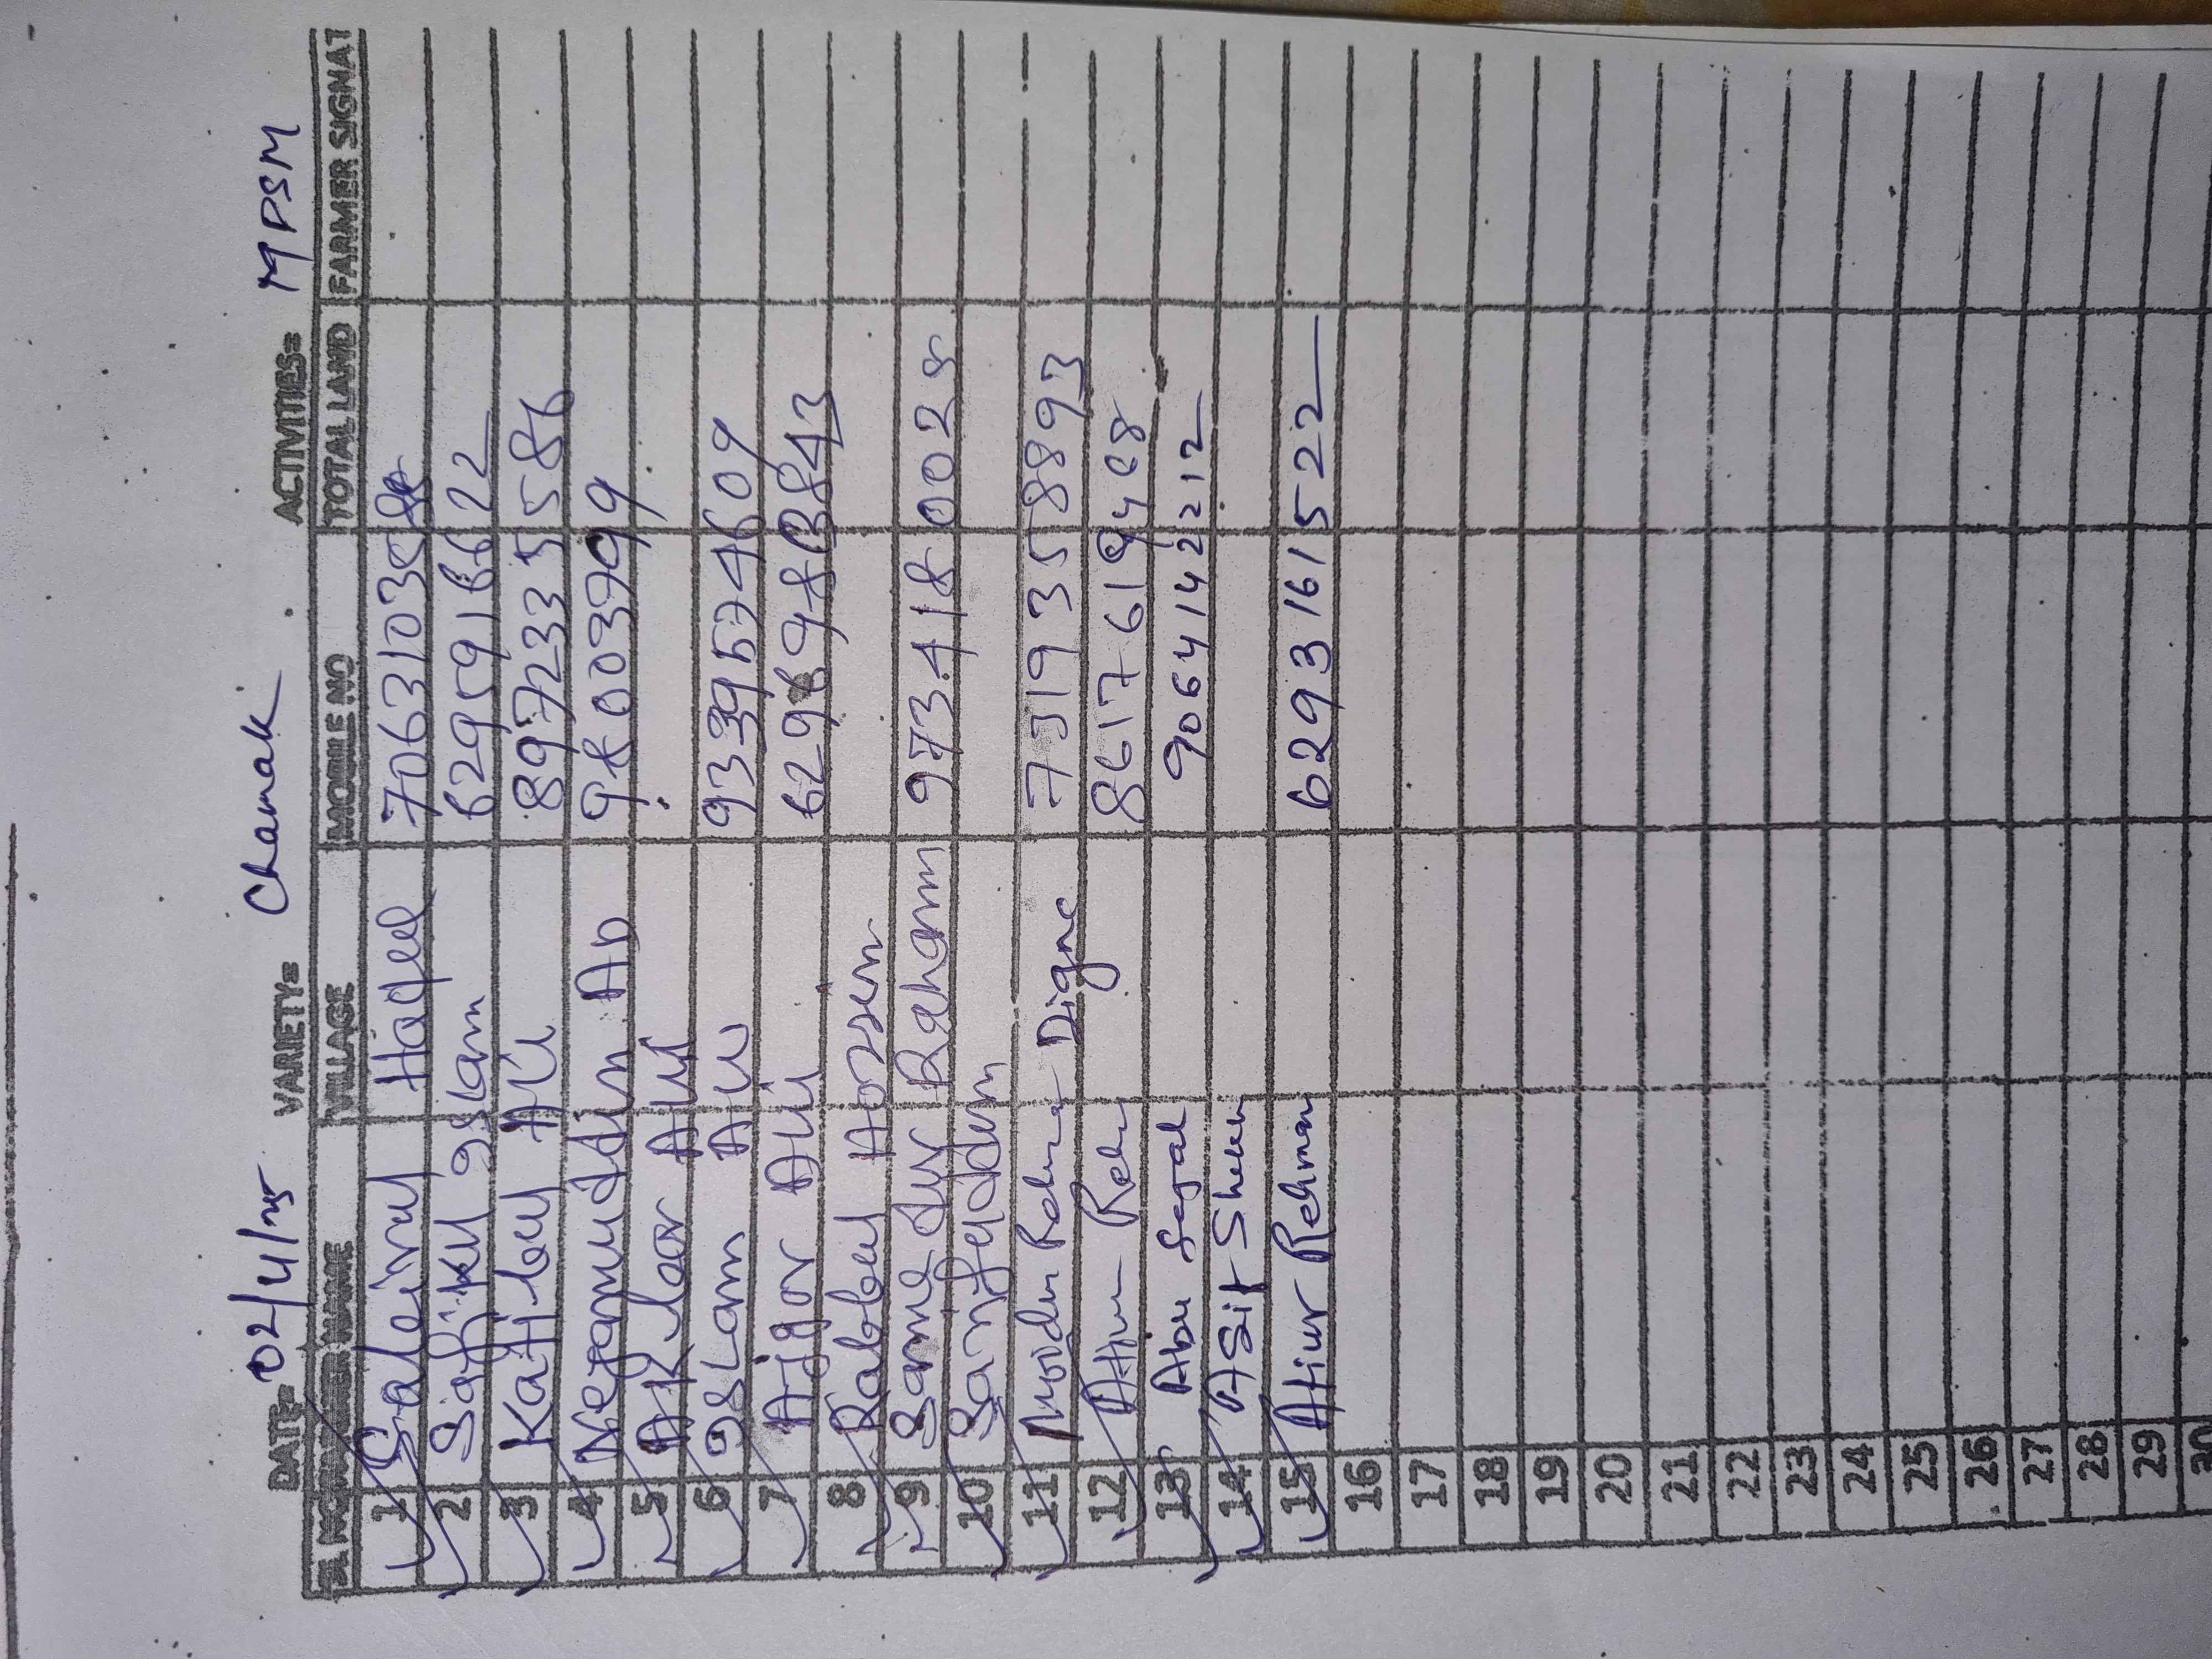 DATE= 02/4/25 VARIETY= Chamak ACTIVITIES= MPSM
SL NO FARMER NAME VILLAGE MOBILE NO TOTAL LAND FARMER SIGNAT
1 Saleinul Haqeel 70631035
2 Safikul Islam 6295916622
3 Katibul Ali 8972335586
4 Nejamuddin AD 9800397999
5 AK loar Ali
6 Islam Ali 9339574609
7 Ajgor Ali
8 Rabbul Hossen
9 Samedur Rahamm 9734180028
10 Sanifuddin
11 Digne 7319358893
12 Rehm 86176194
13 Abu 9064142212
14 ASit Sheikh
15 Atiur Rehman 6293161522
16
17
18
19
20
21
22
23
24
25
26
27
28
29
30